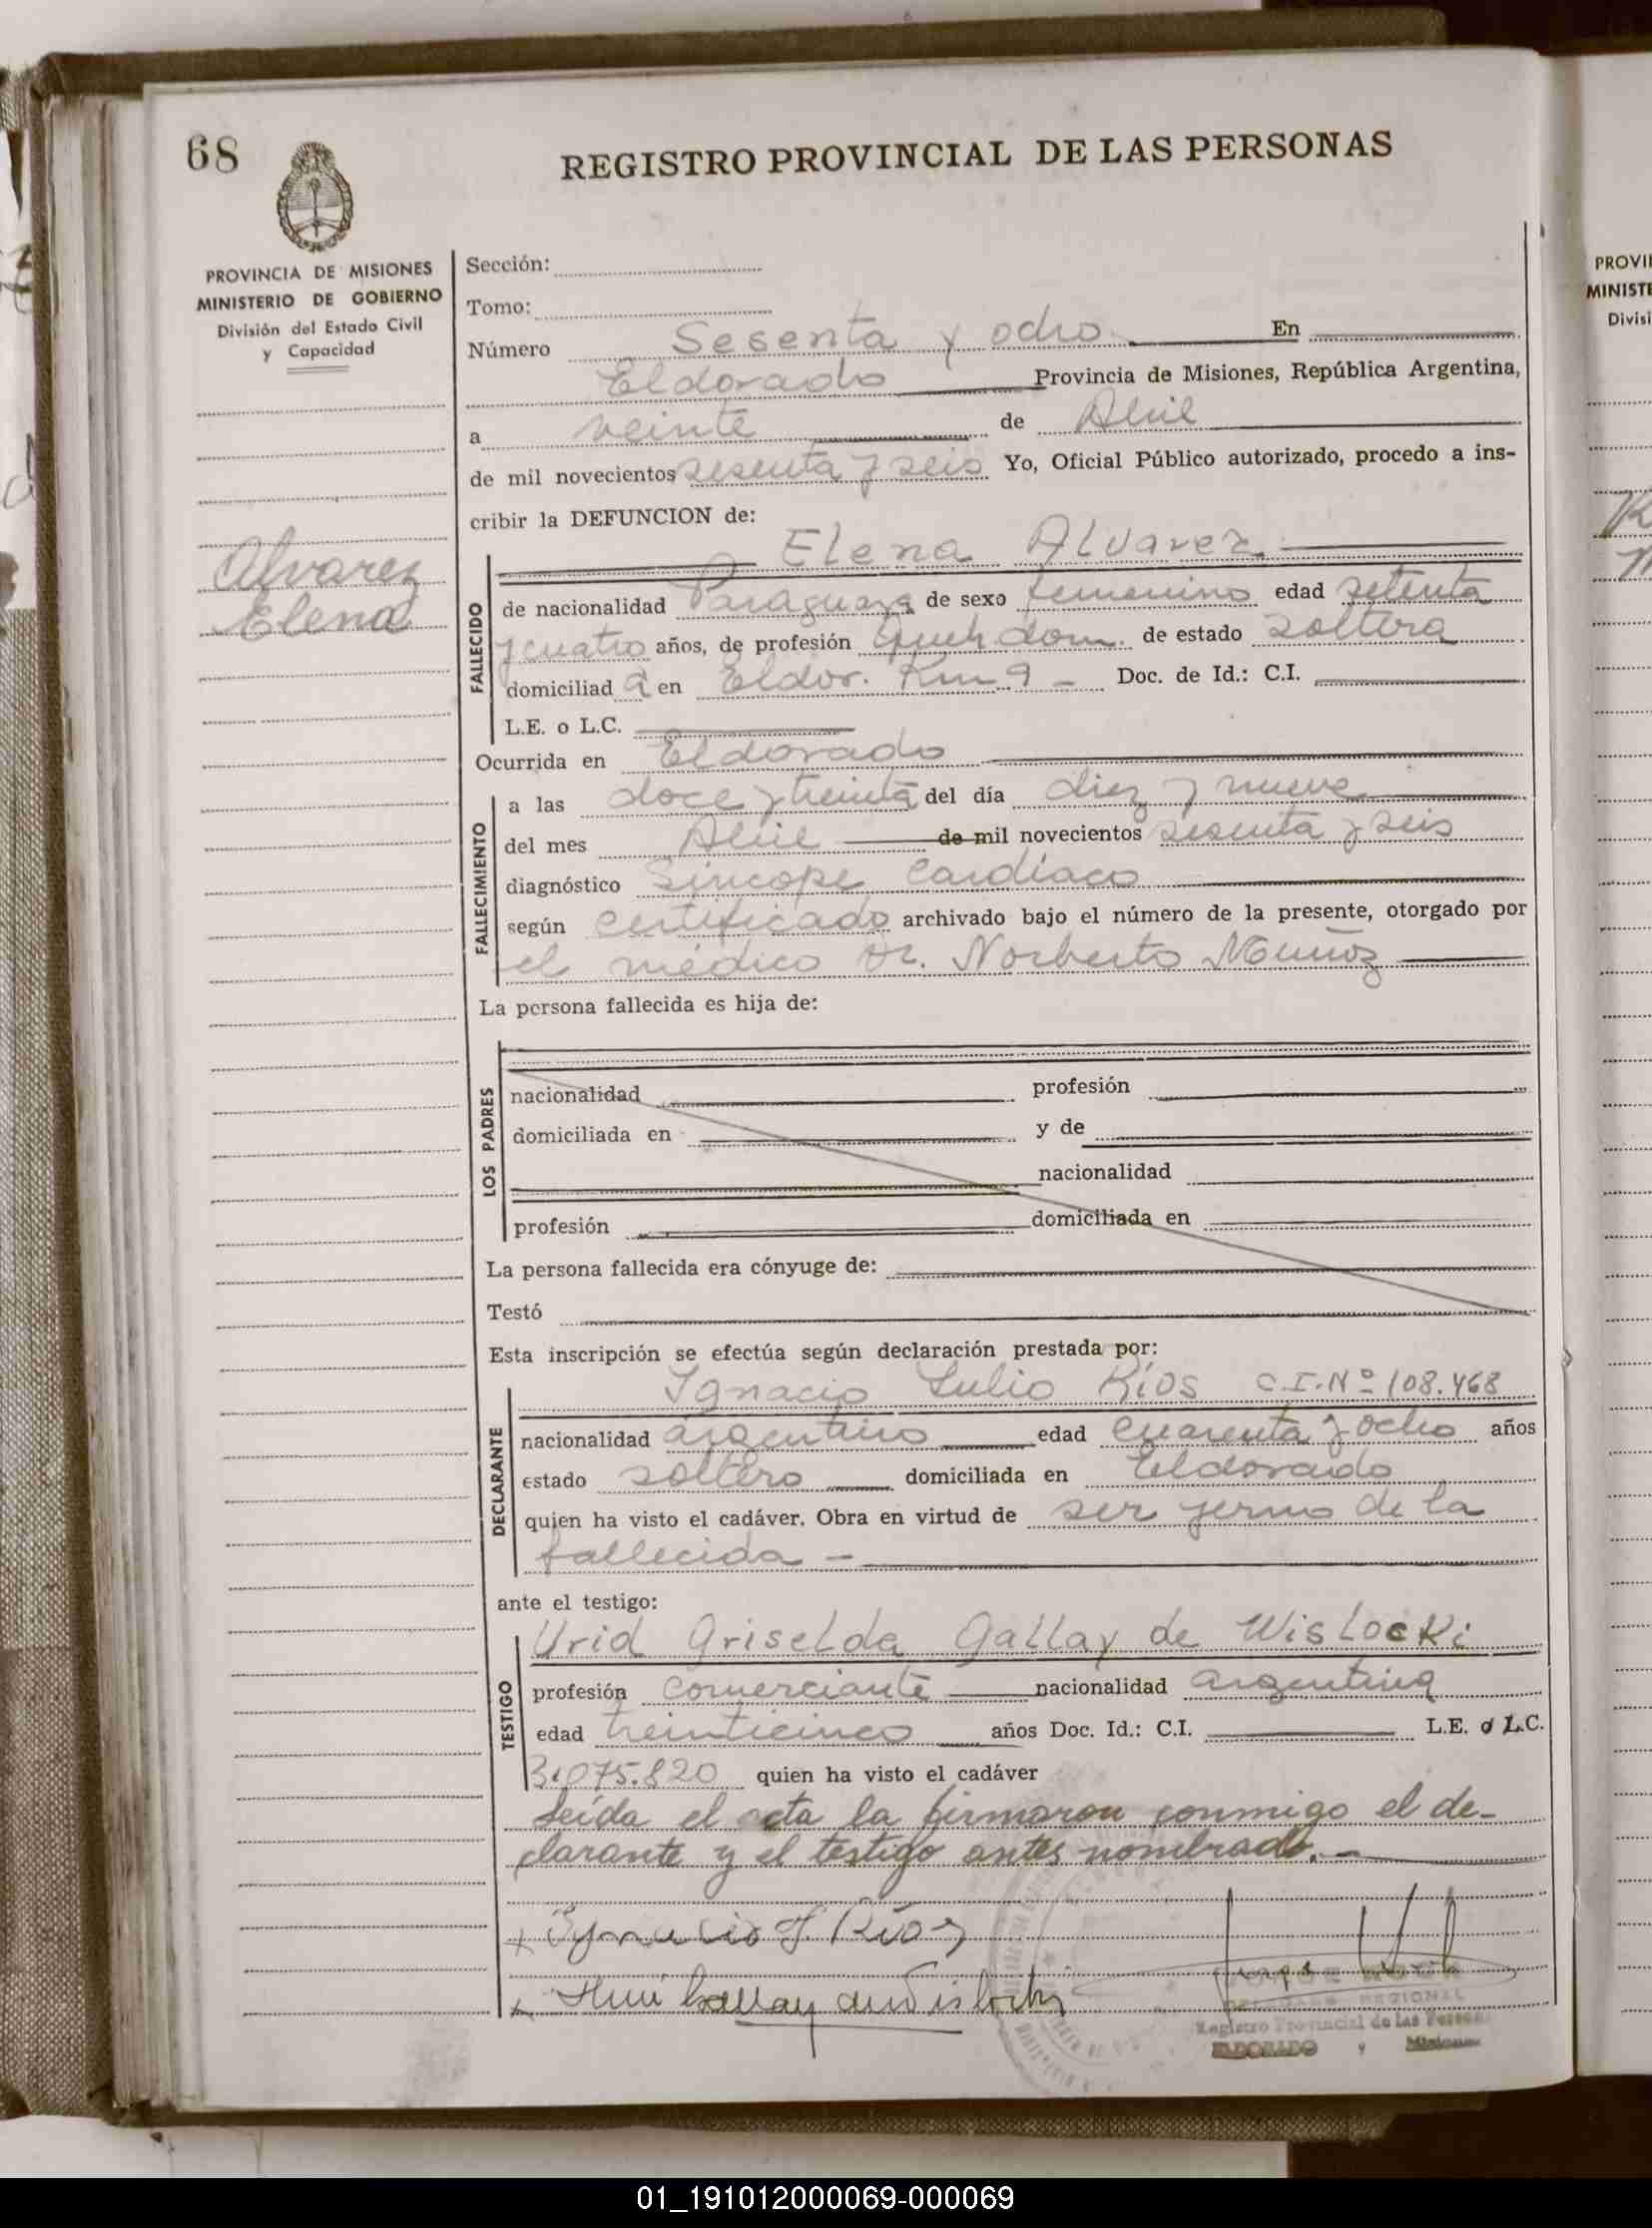 68
REGISTRO PROVINCIAL DE LAS PERSONAS
PROVINCIA DE MISIONES
MINISTERIO DE GOBIERNO
División del Estado Civil
y Capacidad
Alvarez
Elena
Sección:
Tomo:
Número Sesenta y ocho En
Eldorado Provincia de Misiones, República Argentina,
a veinte de Abril
de mil novecientos sesenta y seis Yo, Oficial Público autorizado, procedo a ins-
cribir la DEFUNCION de:
Elena Alvarez
FALLECIDO
de nacionalidad Paraguaya de sexo femenino edad setenta
y cuatro años, de profesión Queh. dom. de estado soltera
domiciliad a en Eldor. Km 9 - Doc. de Id.: C.I.
L.E. o L.C.
Ocurrida en Eldorado
FALLECIMIENTO
a las doce y treinta del día diez y nueve
del mes Abril de mil novecientos sesenta y seis
diagnóstico Síncope Cardíaco
según certificado archivado bajo el número de la presente, otorgado por
el médico Dr. Norberto Muñoz
La persona fallecida es hija de:
LOS PADRES
nacionalidad profesión
domiciliada en y de
nacionalidad
profesión domiciliada en
La persona fallecida era cónyuge de:
Testó
Esta inscripción se efectúa según declaración prestada por:
DECLARANTE
Ignacio Julio Ríos C.I.Nº 108.468
nacionalidad argentino edad cuarenta y ocho años
estado soltero domiciliada en Eldorado
quien ha visto el cadáver. Obra en virtud de ser yerno de la
fallecida -
ante el testigo:
TESTIGO
Urid Griselda Gallay de Wislocki
profesión comerciante nacionalidad argentina
edad treinticinco años Doc. Id.: C.I. L.E. o L.C.
3.075.820 quien ha visto el cadáver
Leída el acta la firmaron conmigo el de-
clarante y el testigo antes nombrado.-
x Ygnacio J. Ríos
x Gallay de Wislocki
REGIONAL
Registro Provincial de las Personas
ELDORADO Misiones
PROVI
MINISTE
Divisi
01_191012000069-000069